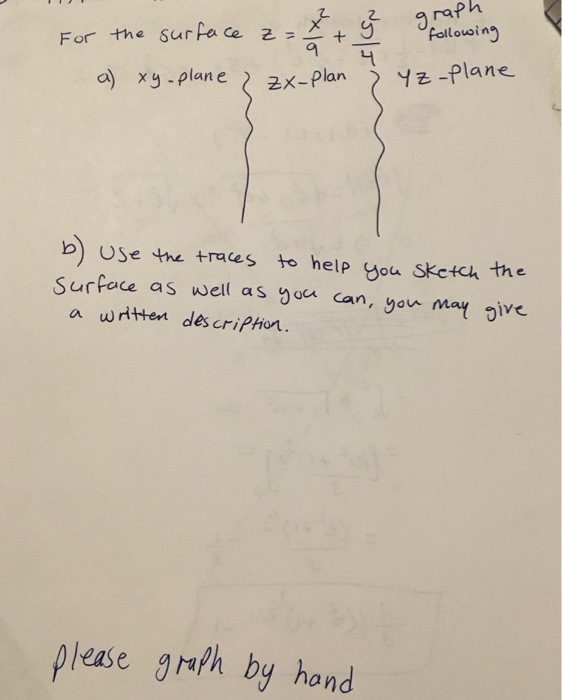 For the surface z = x²/9 + y²/4 graph following
a) xy-plane zx-plan yz-plane
b) Use the traces to help you sketch the
surface as well as you can, you may give
a written description.
please graph by hand